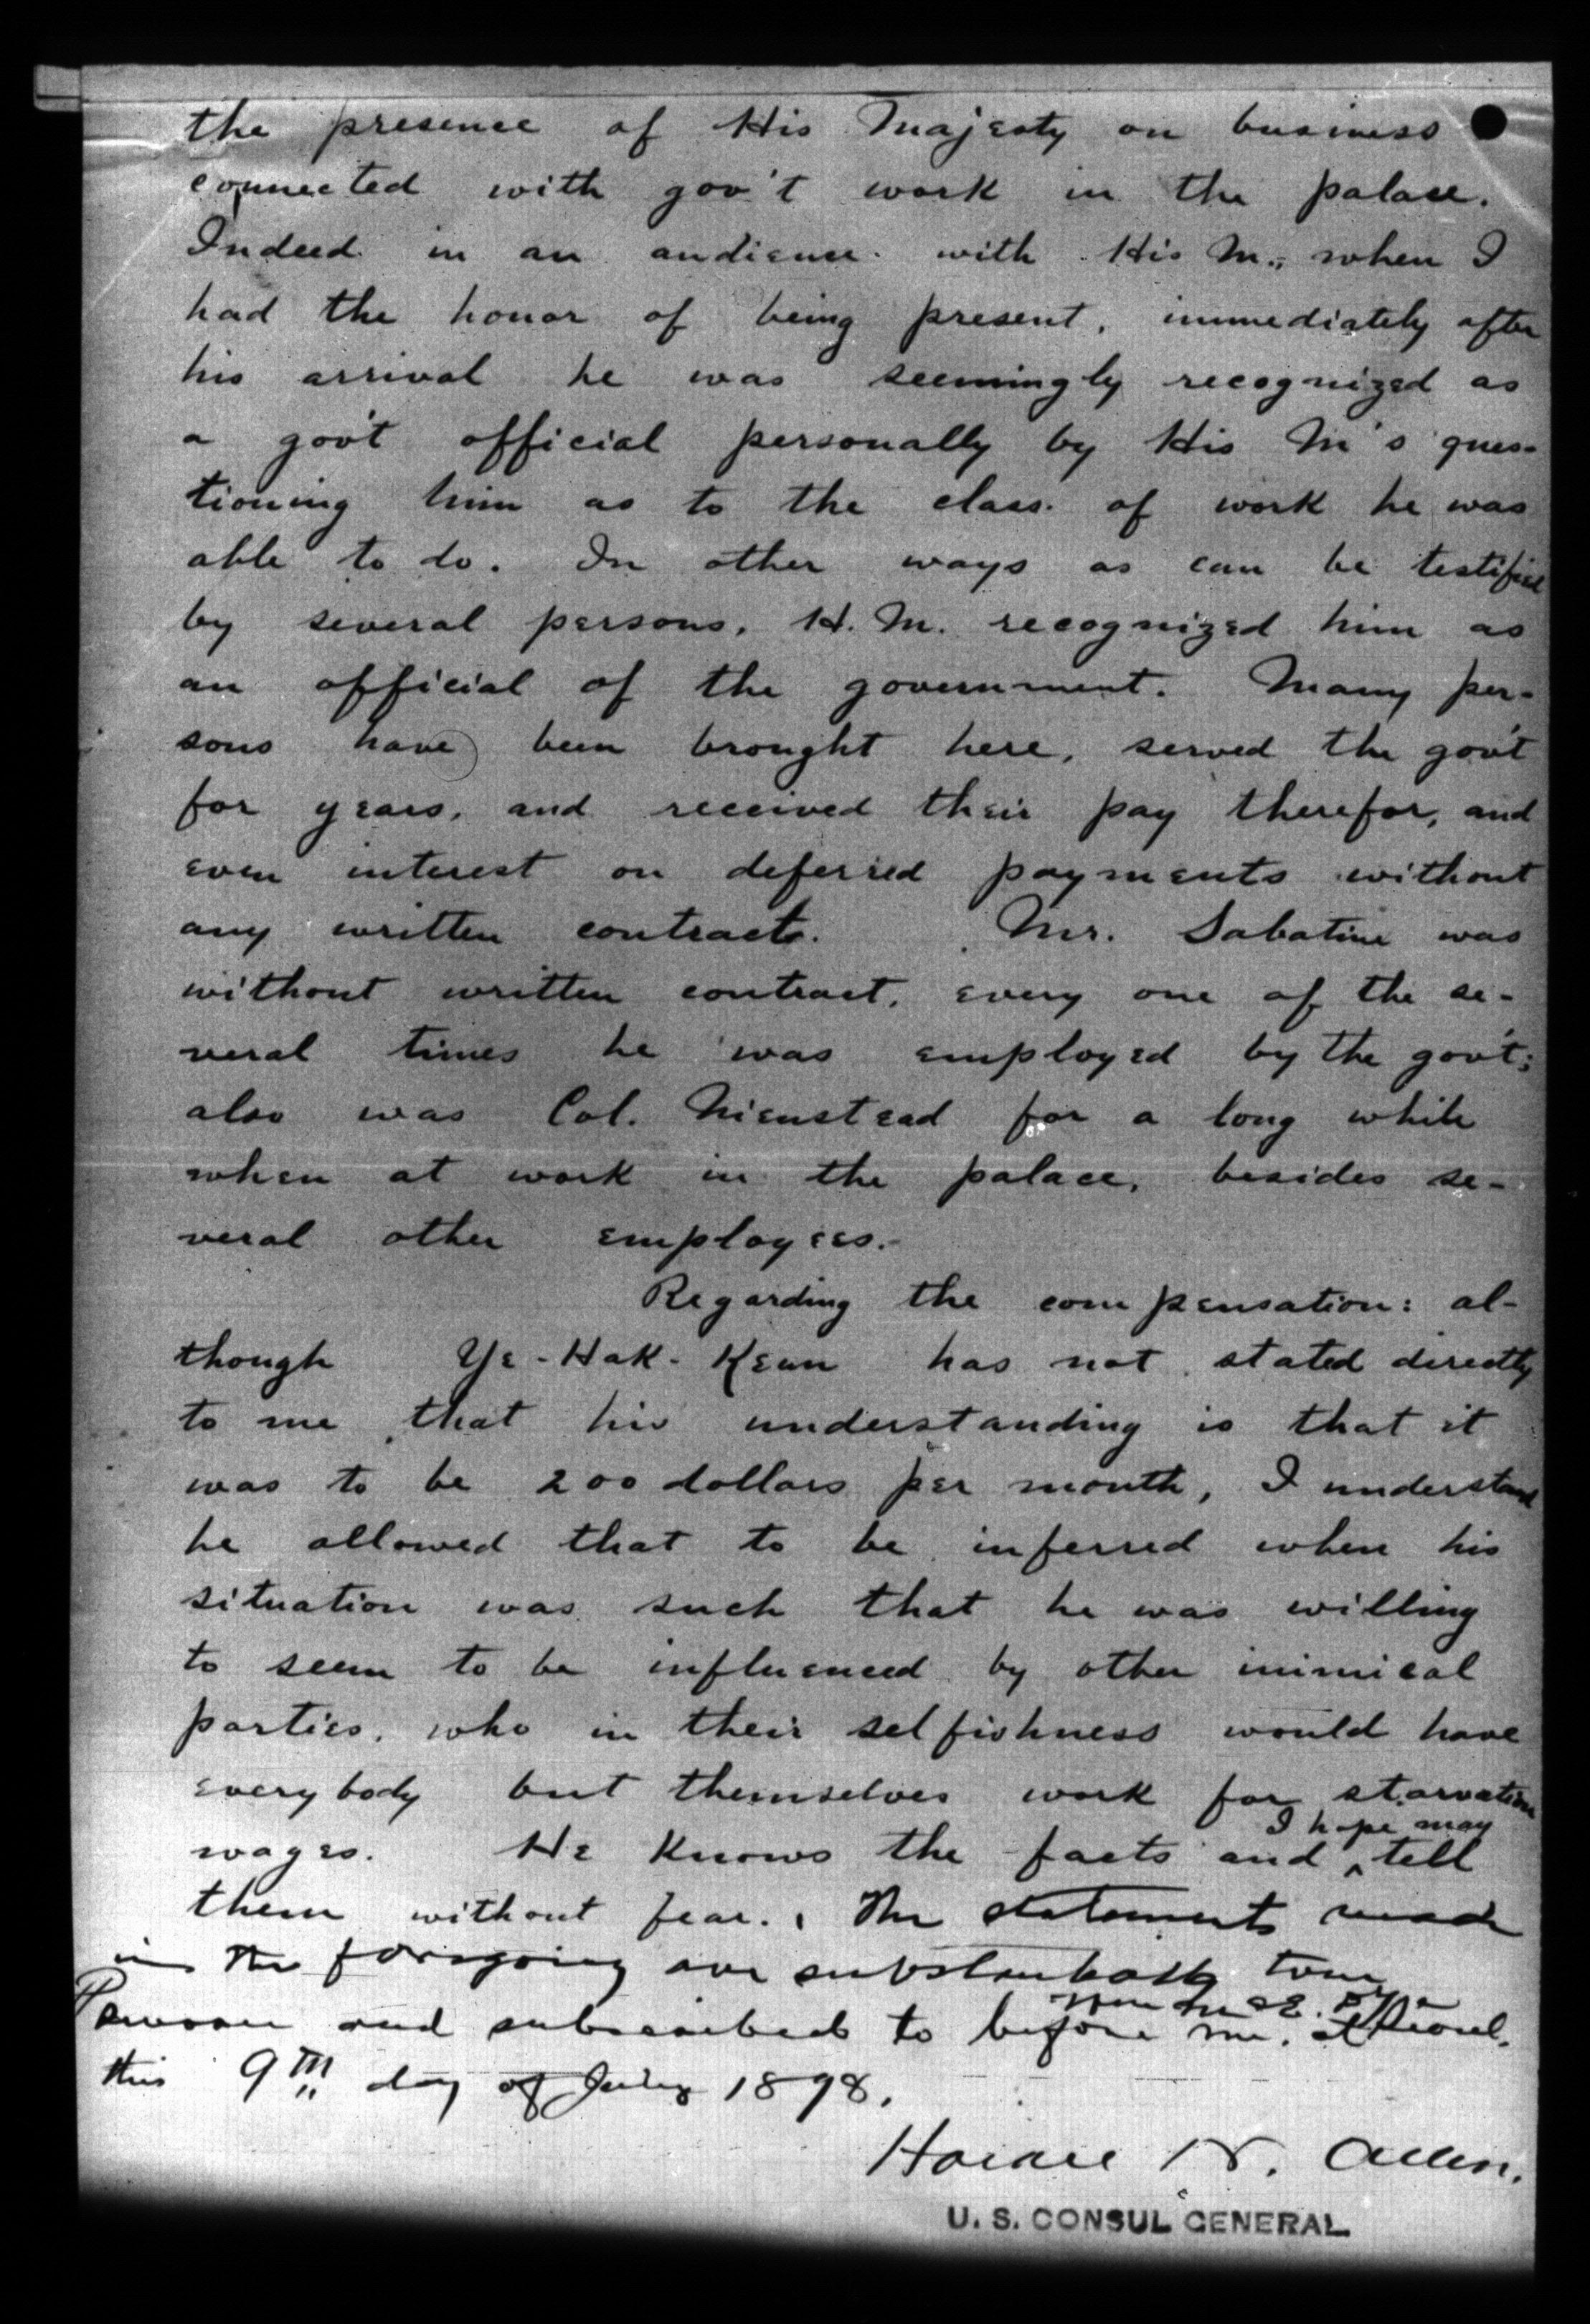 the presence of His Majesty on business
connected with gov't work in the palace.
Indeed in an audience with His M., when I
had the honor of being present, immediately after
his arrival he was seemingly recognized as
a gov't official personally by His M's ques-
tioning him as to the class of work he was
able to do. In other ways as can be testified
by several persons, H. M. recognized him as
an official of the government. Many per-
sons have been brought here, served the gov't
for years, and received their pay therefor, and
even interest on deferred payments without
any written contract. Mr. Sabatine was
without written contract, every one of the se-
veral times he was employed by the gov't;
also was Col. Nienstead for a long while
when at work in the palace, besides se-
veral other employees.-
Regarding the compensation: al-
though Ye-Hak-Keun has not stated directly
to me that his understanding is that it
was to be 200 dollars per month, I understand
he allowed that to be inferred when his
situation was such that he was willing
to seem to be influenced by other inimical
parties, who in their selfishness would have
everybody but themselves work for starvation
I hope may
wages. He knows the facts and ‸ tell
them without fear. The statements made
in the foregoing are substantially true
Wm McE. Dye
Sworn and subscribed to before me, at Seoul,
this 9th day of July 1898.
Horace N. Allen.
U. S. CONSUL GENERAL